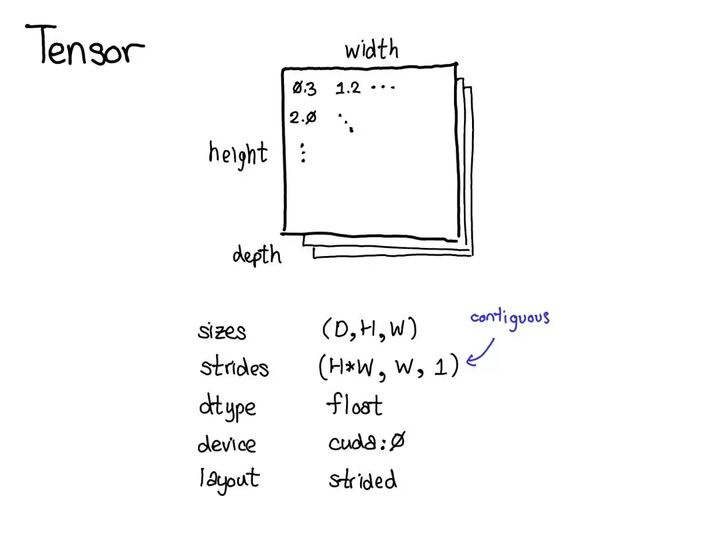 Tensor
width
0.3 1.2 ...
2.0 ⋱
height ⋮
depth
sizes (D,H,W)
contiguous
strides (H*W, W, 1)
dtype float
device cuda:0
layout strided